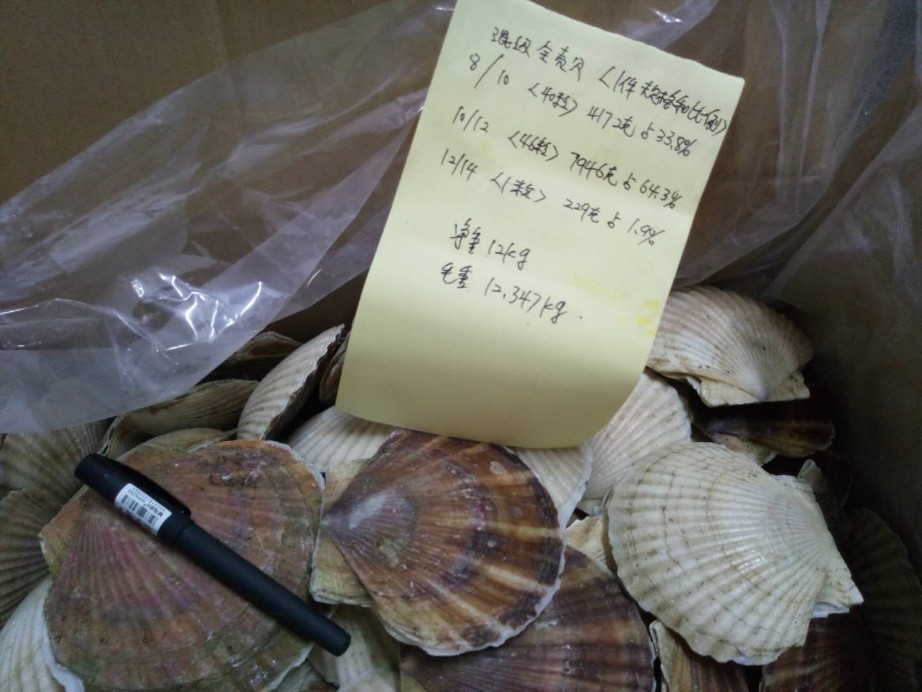 混级全壳贝 〈1件规格和比例〉
8/10 〈40粒〉 4172克占33.8%
10/12 〈46粒〉 7946克占64.3%
12/14 〈1粒〉 229克占1.9%
净重 12kg
毛重 12.347kg.